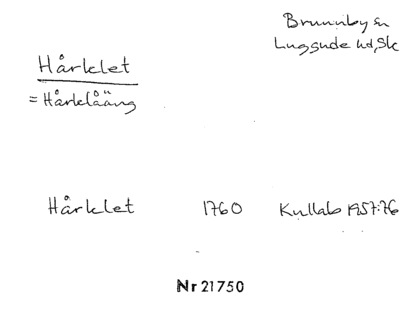 Brunnby sn
Luggude hd, Sk
Hårklet
= Hårklåäng
Hårklet 1760 Kullab 1957:76
Nr 21750